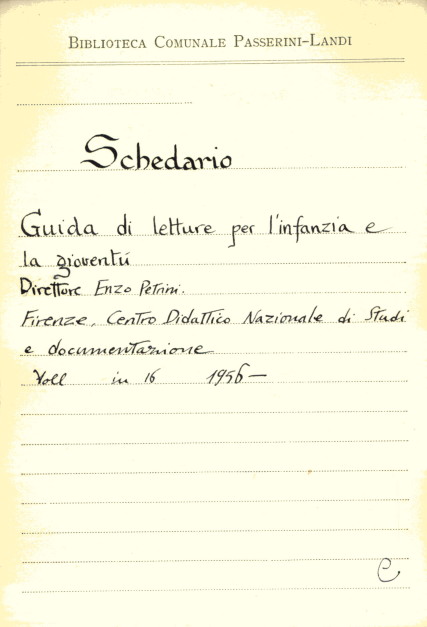 BIBLIOTECA COMUNALE PASSERINI-LANDI
Schedario
Guida di letture per l'infanzia e
la gioventú
Direttore Enzo Petrini.
Firenze, Centro Didattico Nazionale di Studi
e documentazione
Voll in 16 1956—
C